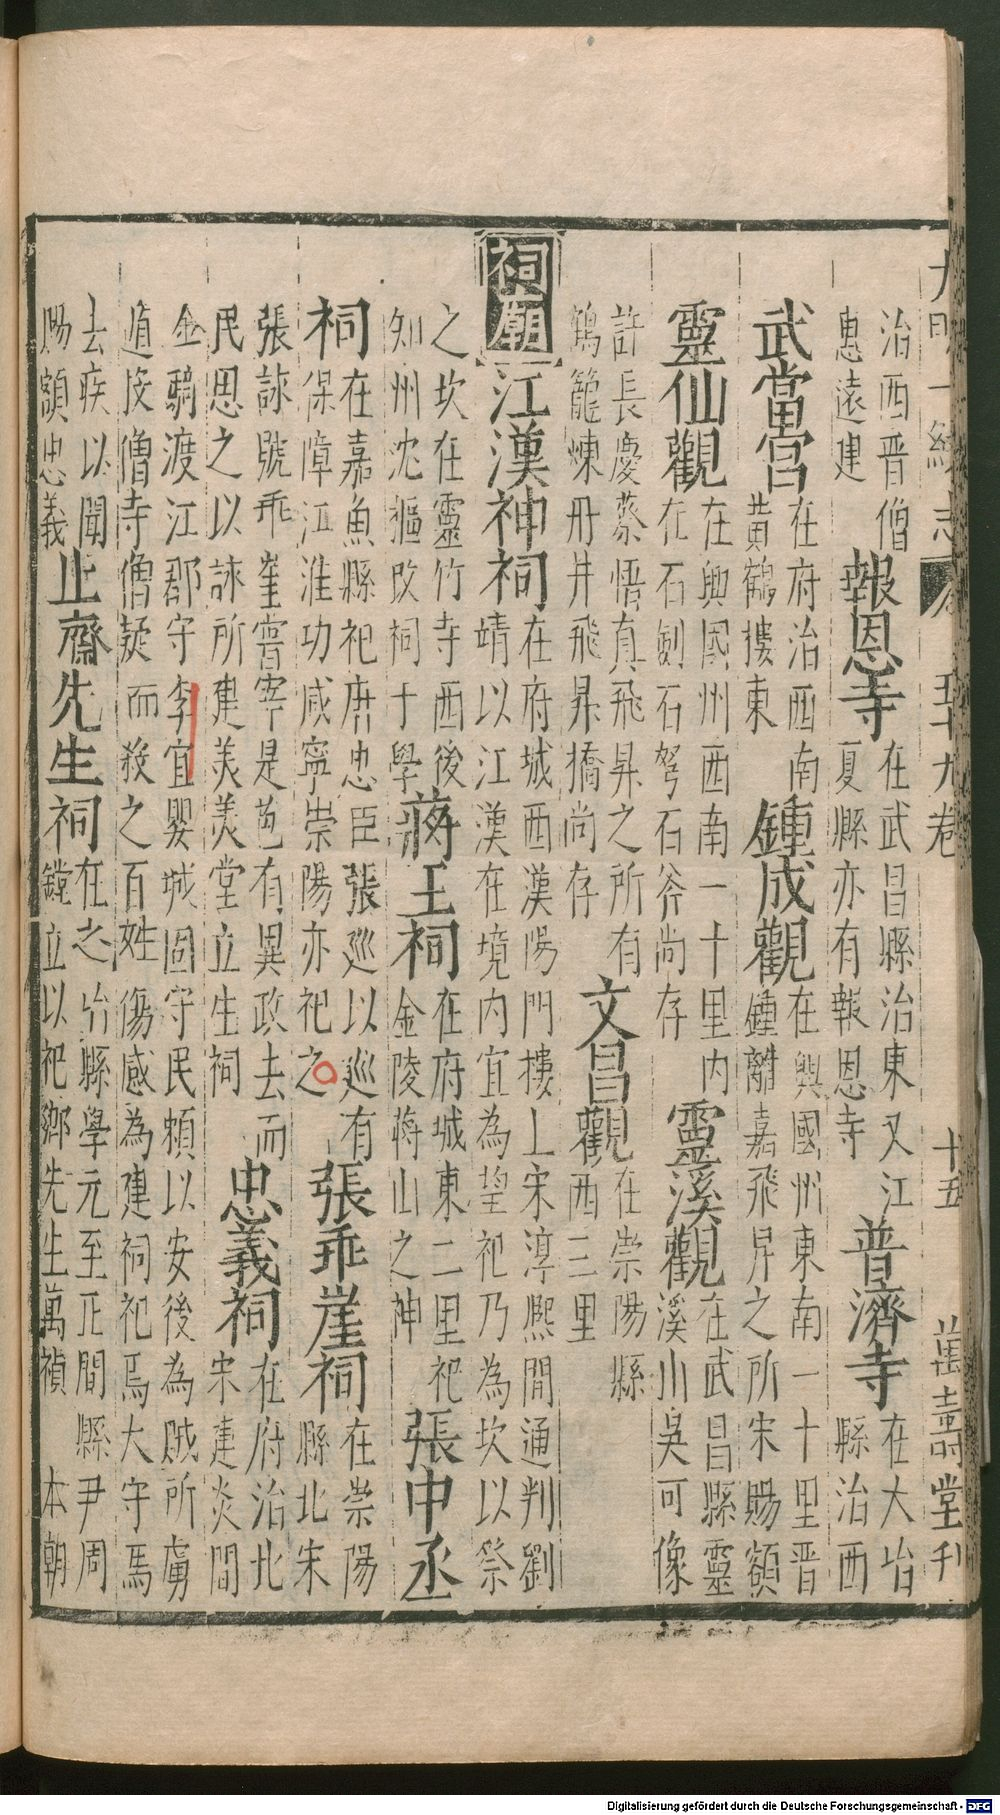 大明一統志 卷 五十九卷 十五 萬壽堂刊
治西晉僧
惠遠建
報恩寺
在武昌縣治東又江
夏縣亦有報恩寺
普濟寺
在大冶
縣治西
武當宮
在府治西南
黃鶴樓東
鍾成觀
在興國州東南一十里晉
鍾離嘉飛昇之所宋賜額
靈仙觀
在興國州西南一十里內
在石劍石弩石斧尚存
靈溪觀
在武昌縣靈
溪川吳可像
許長慶蔡悟真飛昇之所有
鶴籠煉丹井飛昇橋尚存
文昌觀
在崇陽縣
西三里
祠廟
江漢神祠
在府城西漢陽門樓上宋淳熙間通判劉
靖以江漢在境內宜為望祀乃為坎以祭
之坎在靈竹寺西後
知州沈樞改祠于學
蔣王祠
在府城東二里祀
金陵蔣山之神
張中丞
祠
在嘉魚縣祀唐忠臣張巡以巡有
保障江淮功咸寧崇陽亦祀之
張乖崖祠
在崇陽
縣北宋
張詠號乖崖嘗宰是邑有異政去而
民思之以詠所建美美堂立生祠
忠義祠
在府治北
宋建炎間
金騎渡江郡守李宜嬰城固守民賴以安後為賊所虜
遁按僧寺僧疑而殺之百姓傷感為建祠祀焉大守馬
去疾以聞
賜額忠義
止齋先生祠
在之冶縣學元至正間縣尹周
鏜立以祀鄉先生萬禎 本朝
Digitalisierung gefördert durch die Deutsche Forschungsgemeinschaft - DFG